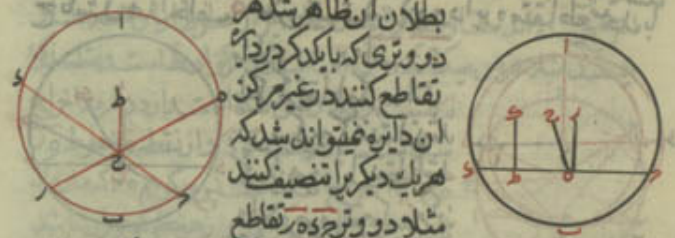 بطلان ان ظاهر شد هر
دو وتری که با یکدکر در دایره
تقاطع کنند در غیر مرکز
ان دایره نمیتواند شد که
هر یک دیکریرا تنصیف کنند
مثلا دو وتر ح ء ه ر تقاطع